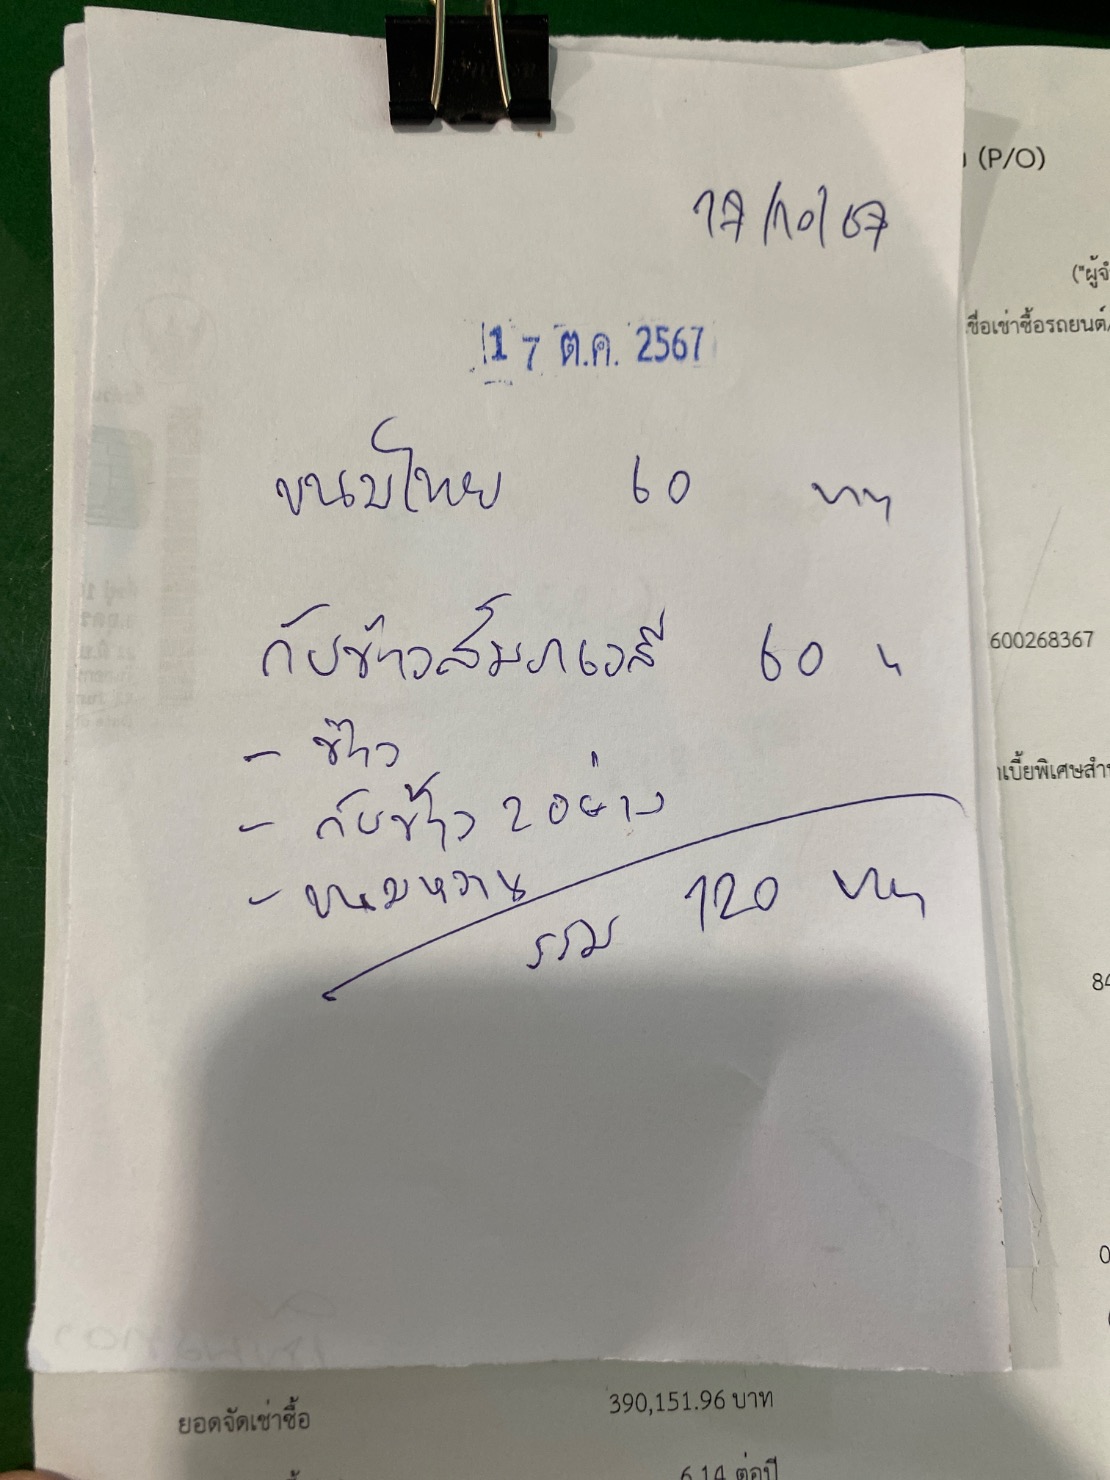 (P/O)
17/10/67
("ผู้จำ
เชื่อเช่าซื้อรถยนต์/
17 ต.ค. 2567
ขนมไทย 60 บาท
กับข้าวสัมภเวสี 60 "
600268367
- ข้าว
เบี้ยพิเศษสำห
- กับข้าว 2 อย่าง
- ขนมหวาน
รวม 120 บาท
84
ยอดจัดเช่าซื้อ 390,151.96 บาท
6.14 ต่อปี